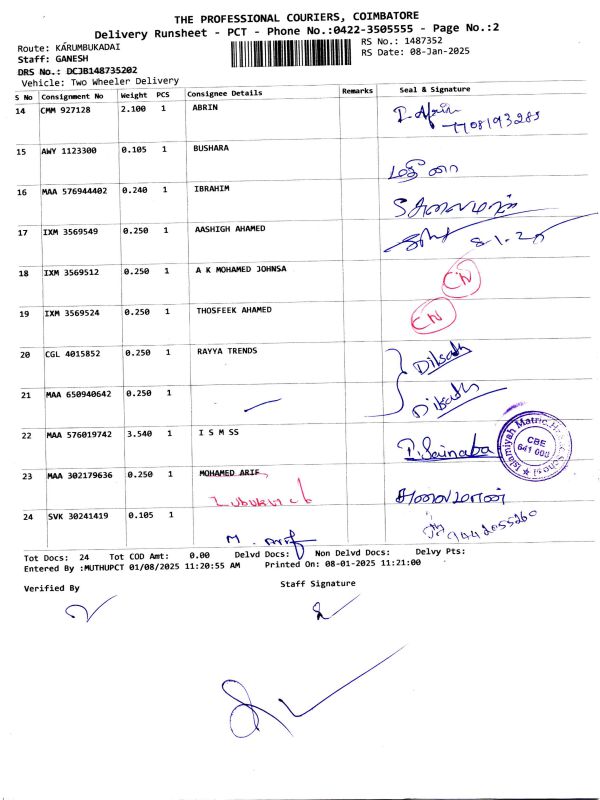 THE PROFESSIONAL COURIERS, COIMBATORE
Delivery Runsheet - PCT - Phone No.:0422-3505555 - Page No.:2
Route: KARUMBUKADAI
RS No.: 1487352
Staff: GANESH
RS Date: 08-Jan-2025
DRS No.: DCJB148735202
Vehicle: Two Wheeler Delivery
S No Consignment No Weight PCS Consignee Details Remarks Seal & Signature
14 CMM 927128 2.100 1 ABRIN I. Afrin
7708193285
15 AWY 1123300 0.105 1 BUSHARA
16 MAA 576944402 0.240 1 IBRAHIM
17 IXM 3569549 0.250 1 AASHIGH AHAMED 8-1-25
18 IXM 3569512 0.250 1 A K MOHAMED JOHNSA CN
19 IXM 3569524 0.250 1 THOSFEEK AHAMED CN
20 CGL 4015852 0.250 1 RAYYA TRENDS Dilsath
21 MAA 650940642 0.250 1 Dilsath
22 MAA 576019742 3.540 1 I S M SS P. Sainaba
Islamiyah Matric.Hr.Sec.School
CBE
641 008
23 MAA 302179636 0.250 1 MOHAMED ARIF
24 SVK 30241419 0.105 1 M. Arif 9442055260
Tot Docs: 24 Tot COD Amt: 0.00 Delvd Docs: Non Delvd Docs: Delvy Pts:
Entered By :MUTHUPCT 01/08/2025 11:20:55 AM Printed On: 08-01-2025 11:21:00
Verified By Staff Signature